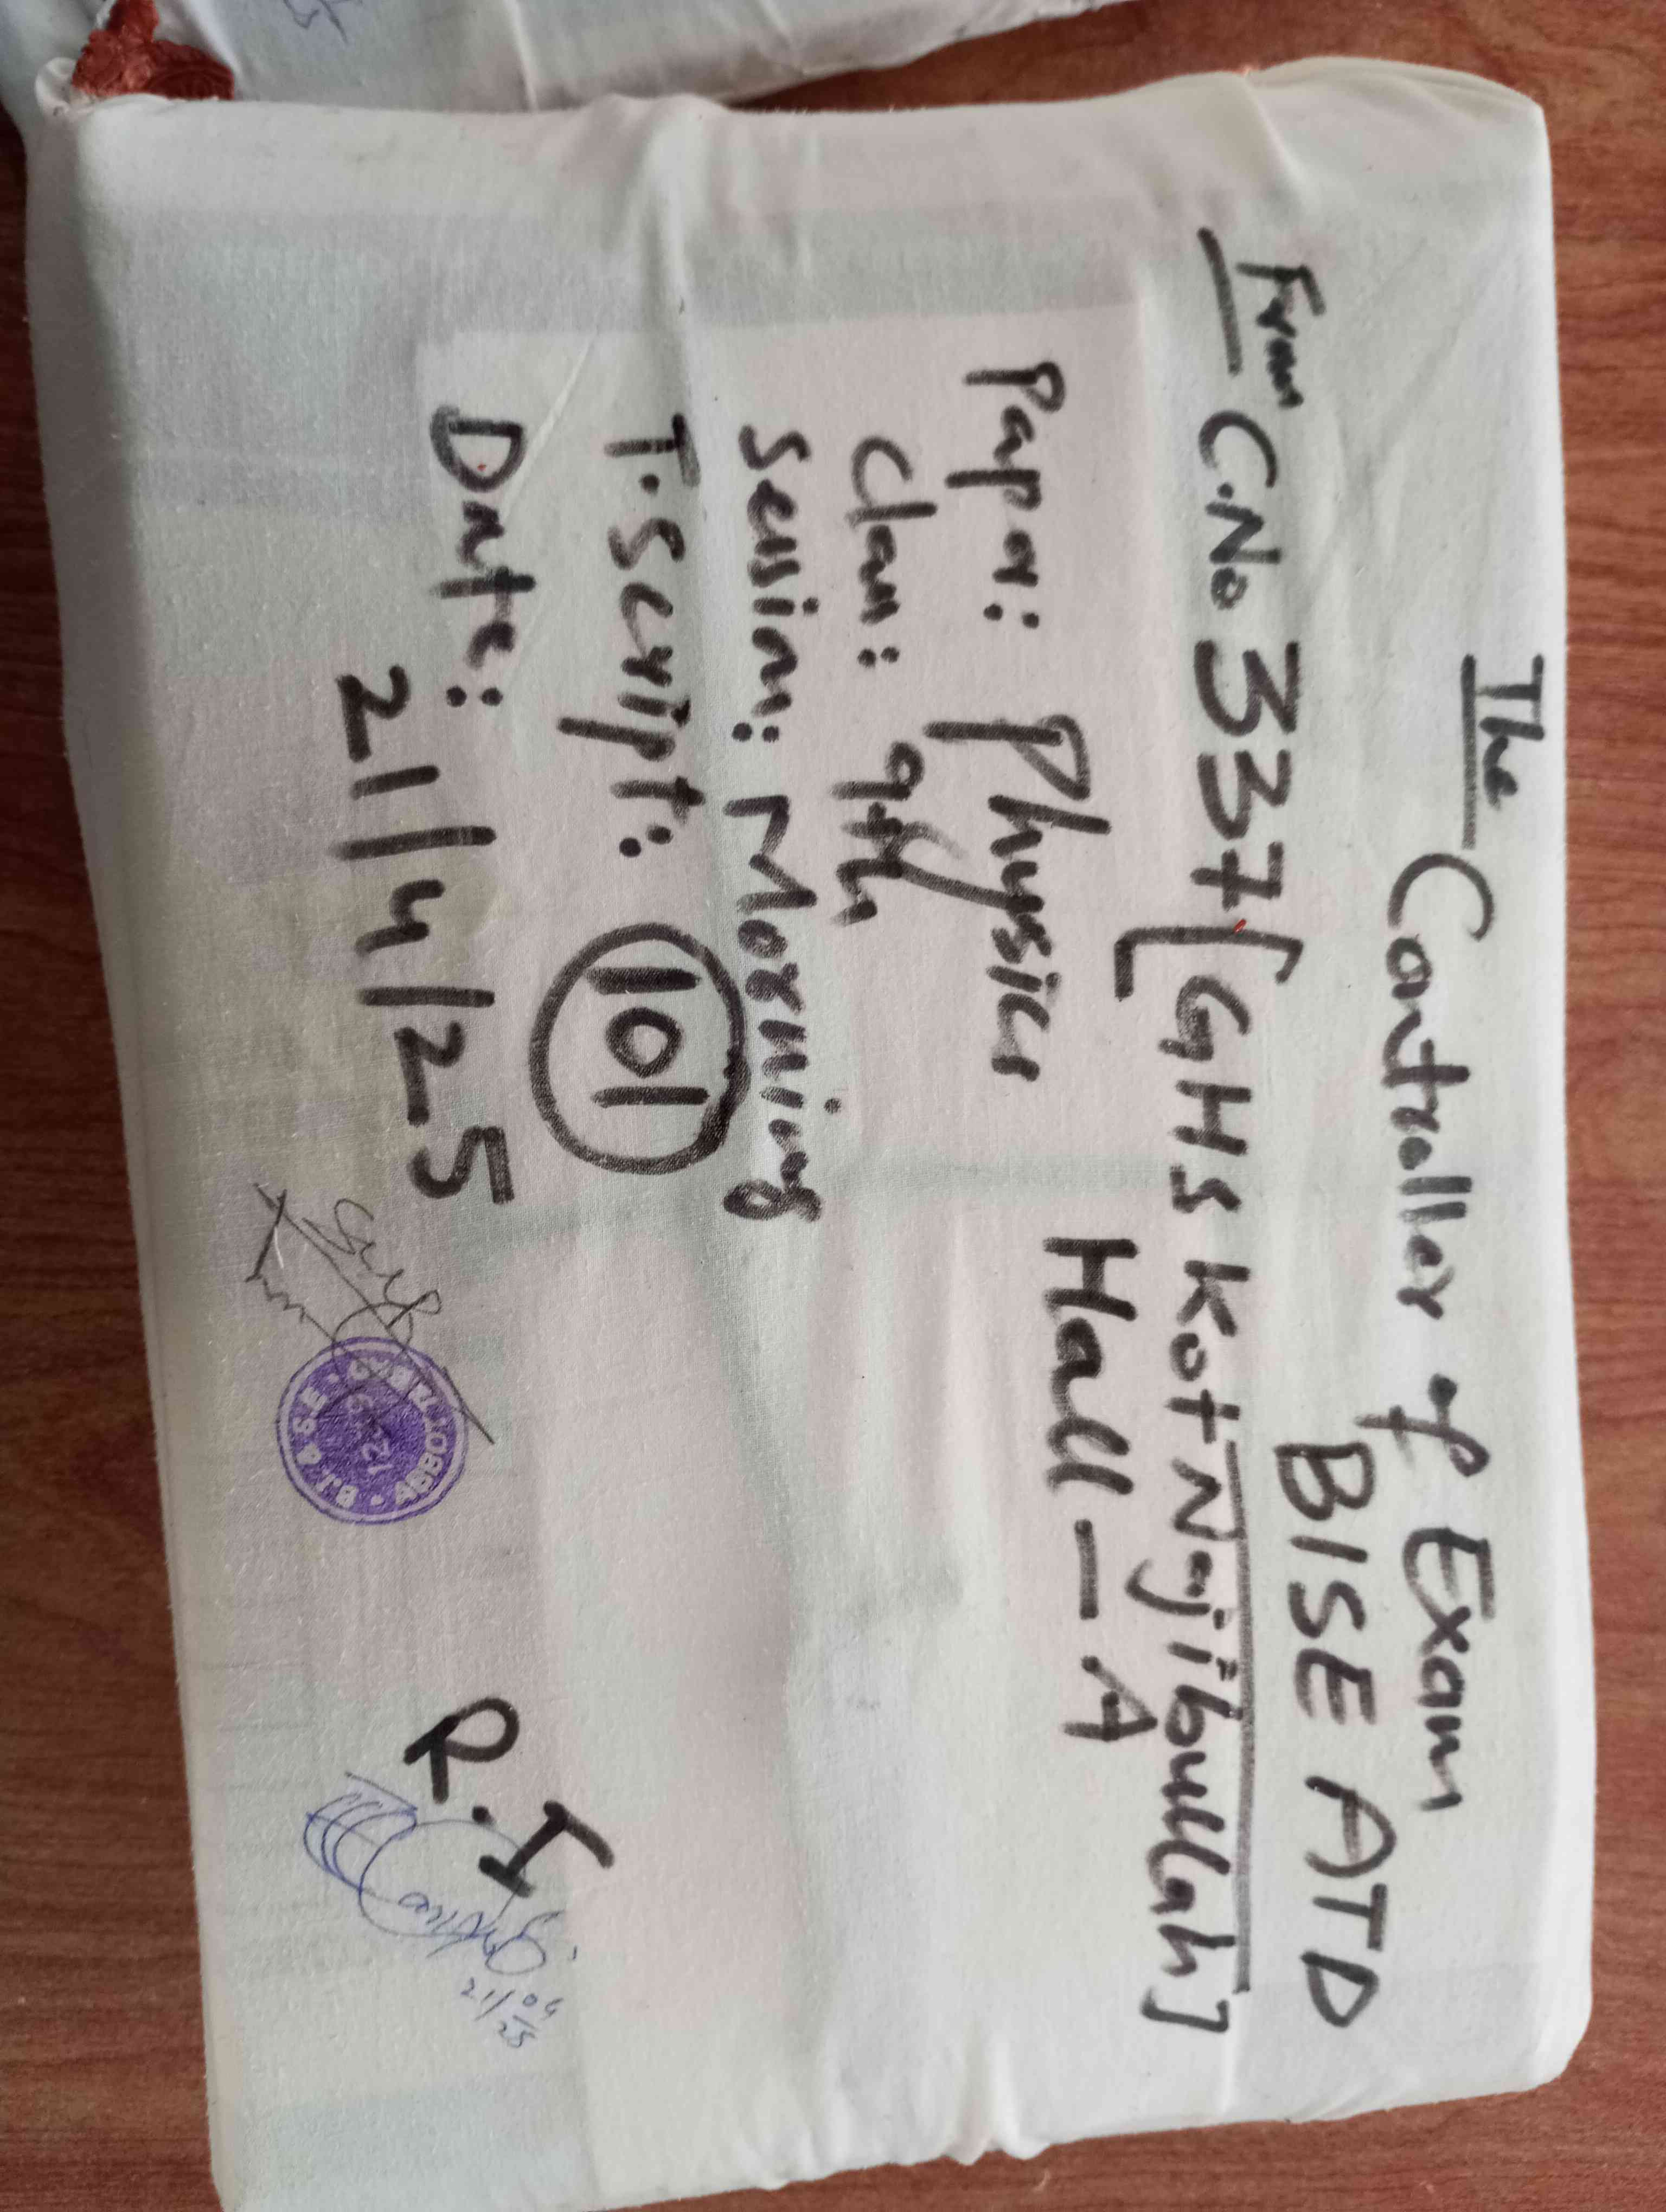 The Controller of Exam
BISE ATD
From C.No 337 [GHS Kot Najibullah]
Hall - A
Paper: Physics
Class: 9th
Session: Morning
T.Script: 101
Date:
21/4/25
R.I
21/04/25
B.I & S.E ABBO